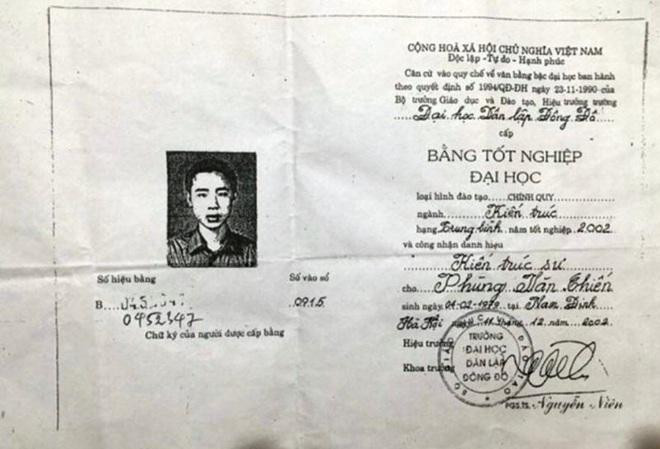 Số hiệu bằng
Số vào sổ
B
0915
0452347
Chữ ký của người được cấp bằng
CỘNG HOÀ XÃ HỘI CHỦ NGHĨA VIỆT NAM
Độc lập -Tự do - Hạnh phúc
Căn cứ vào quy chế về văn bằng bậc đại học ban hành
theo quyết định số 1994/QĐ-ĐH ngày 23-11-1990 của
Bộ trưởng Giáo dục và Đào tạo, Hiệu trưởng trường
Đại học Dân lập Đông Đô
cấp
BẰNG TỐT NGHIỆP
ĐẠI HỌC
loại hình đào tạo CHÍNH QUY
ngành Kiến trúc
hạng Trung bình năm tốt nghiệp 2002
và công nhận danh hiệu
Kiến trúc sư
cho Phùng Văn Chiến
sinh ngày 01-02-1979 tại Nam Định
Hà Nội ngày 11 tháng 12 năm 2002
Hiệu trưởng
Khoa trưởng
TRƯỜNG
ĐẠI HỌC
DÂN LẬP
ĐÔNG ĐÔ
PGS.TS. Nguyễn Niên